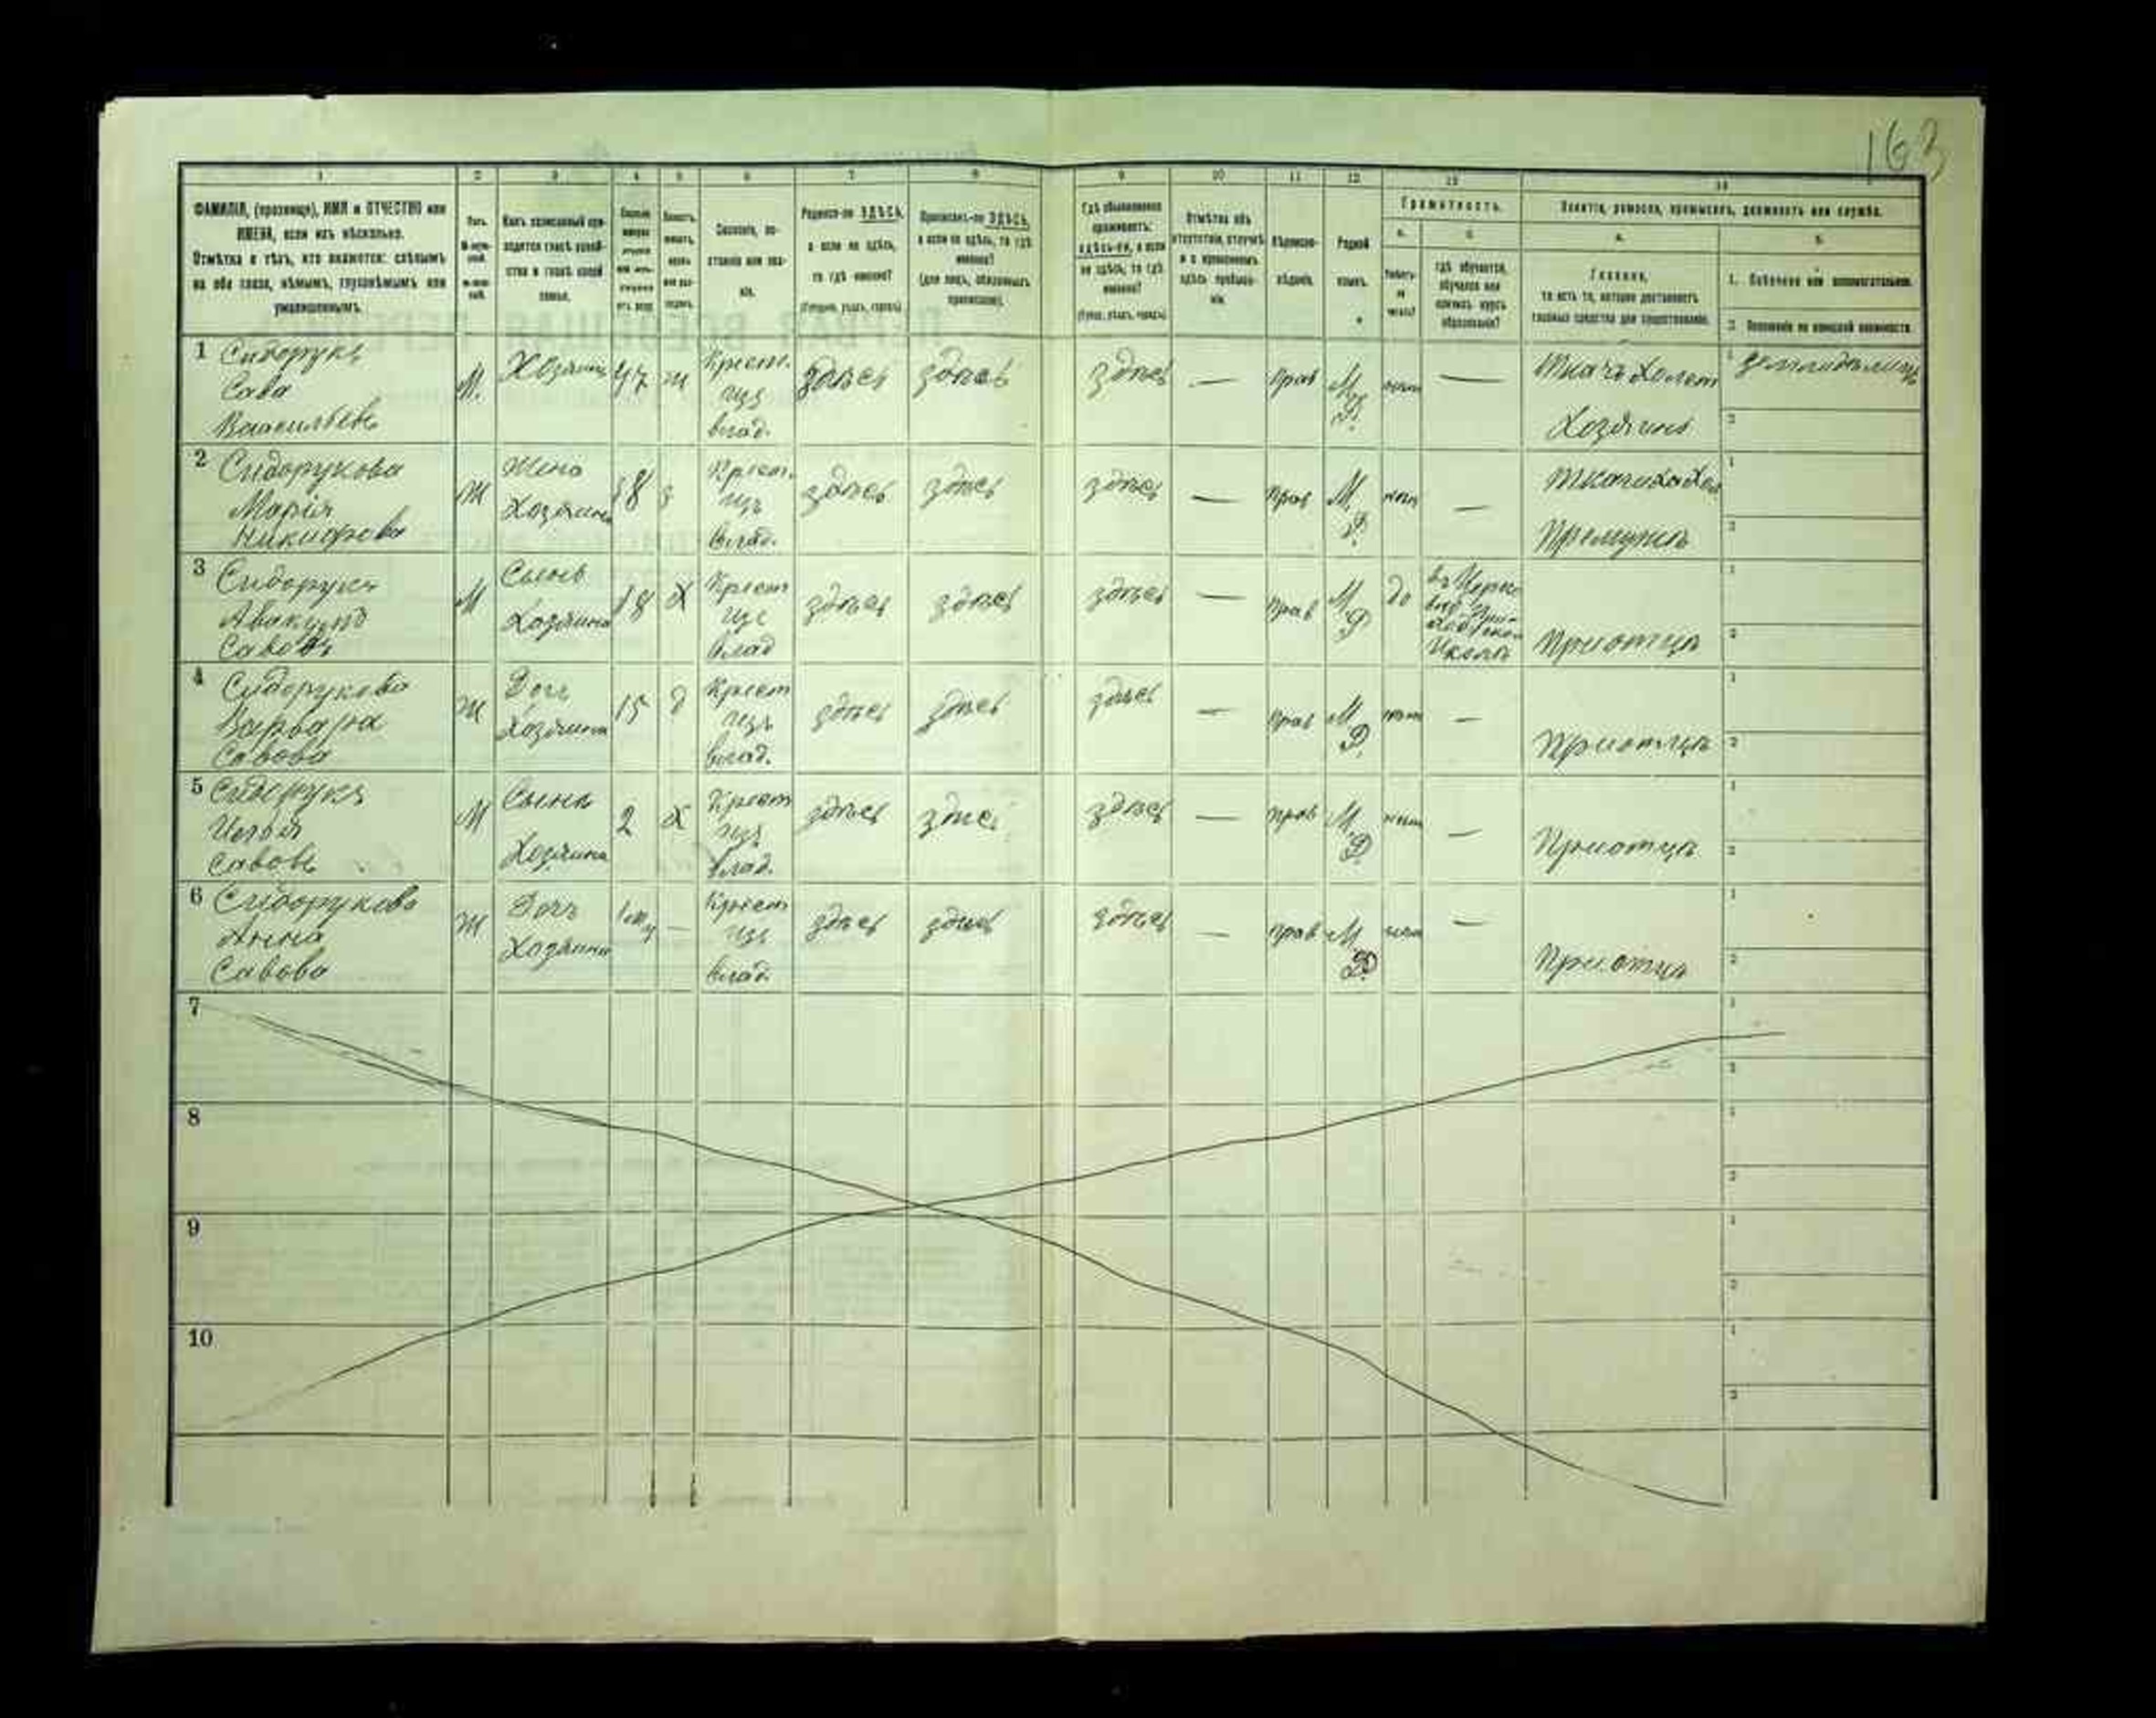 163
1 2 3 4 5 6 7 8 9 10 11 12 13 14
ФАМИЛІЯ, (прозвище), ИМЯ и ОТЧЕСТВО или
ИМЕНА, если ихъ нѣсколько.
Отмѣтка о тѣхъ, кто окажется: слѣпымъ
на оба глаза, нѣмымъ, глухонѣмымъ или
умалишеннымъ.
Полъ.
Какъ записанный при-
ходится главѣ хозяй-
ства и главѣ своей
семьи.
Сословіе, со-
стояніе или зва-
ніе.
Родился-ли ЗДѢСЬ,
а если не здѣсь,
то гдѣ именно?
(Губернія, уѣздъ, городъ)
Приписанъ-ли ЗДѢСЬ,
а если не здѣсь, то гдѣ
именно?
(для лицъ, обязанныхъ
припискою).
Гдѣ обыкновенно
проживаетъ:
здѣсь-ли, а если
не здѣсь, то гдѣ
именно?
(Губер., уѣздъ, городъ)
Отмѣтка объ
отсутствіи, отлучкѣ
и о временномъ
здѣсь пребыва-
ніи.
Вѣроиспо-
вѣданіе.
Родной
языкъ.
Грамотность.
а.
б.
Умѣетъ-
ли
читать?
гдѣ обучается,
обучался или
кончилъ курсъ
образованія?
Занятіе, ремесло, промыселъ, должность или служба.
а.
б.
Главное,
то есть то, которое доставляетъ
главныя средства для существованія.
1. Побочное или вспомогательное.
2. Положеніе по воинской повинности.
1 Сидорукъ
Сава
Васильевъ
М.
Хозяинъ
47
ж
Крест.
изъ
влад.
здѣсь
здѣсь
здѣсь
—
Прав
М.
Р.
нѣтъ
—
Ткачъ Холст
Хозяинъ
1 земледѣлецъ
2
2 Сидорукова
Марія
Никифрова
Ж
Жена
Хозяина
38
з
Крест.
изъ
влад.
здѣсь
здѣсь
здѣсь
—
Прав
М.
Р.
нѣтъ
—
1
2
3 Сидорукъ
Авакумъ
Савовъ
М
Сынъ
Хозяина
18
Х
Крест
изъ
влад
здѣсь
здѣсь
здѣсь
—
Прав
М.
Р
да
Школѣ
При отцѣ
1
2
4 Сидорукова
Варвара
Савова
Ж
Дочь
Хозяина
15
д
Крест
изъ
влад.
здѣсь
здѣсь
здѣсь
—
Прав
М.
Р.
нѣтъ
—
При отцѣ
1
2
5 Сидорукъ
Илья
Савовъ
М
Сынъ
Хозяина
2
Х
Крест
изъ
влад.
здѣсь
здѣсь
здѣсь
—
Прав
М.
Р.
нѣтъ
—
При отцѣ
1
2
6 Сидорукова
Анна
Савова
Ж
Дочь
Хозяина
—
Крест
изъ
влад.
здѣсь
здѣсь
здѣсь
—
Прав
М.
Р.
нѣтъ
—
При отцѣ
1
2
7
1
2
8
1
2
9
1
2
10
1
2